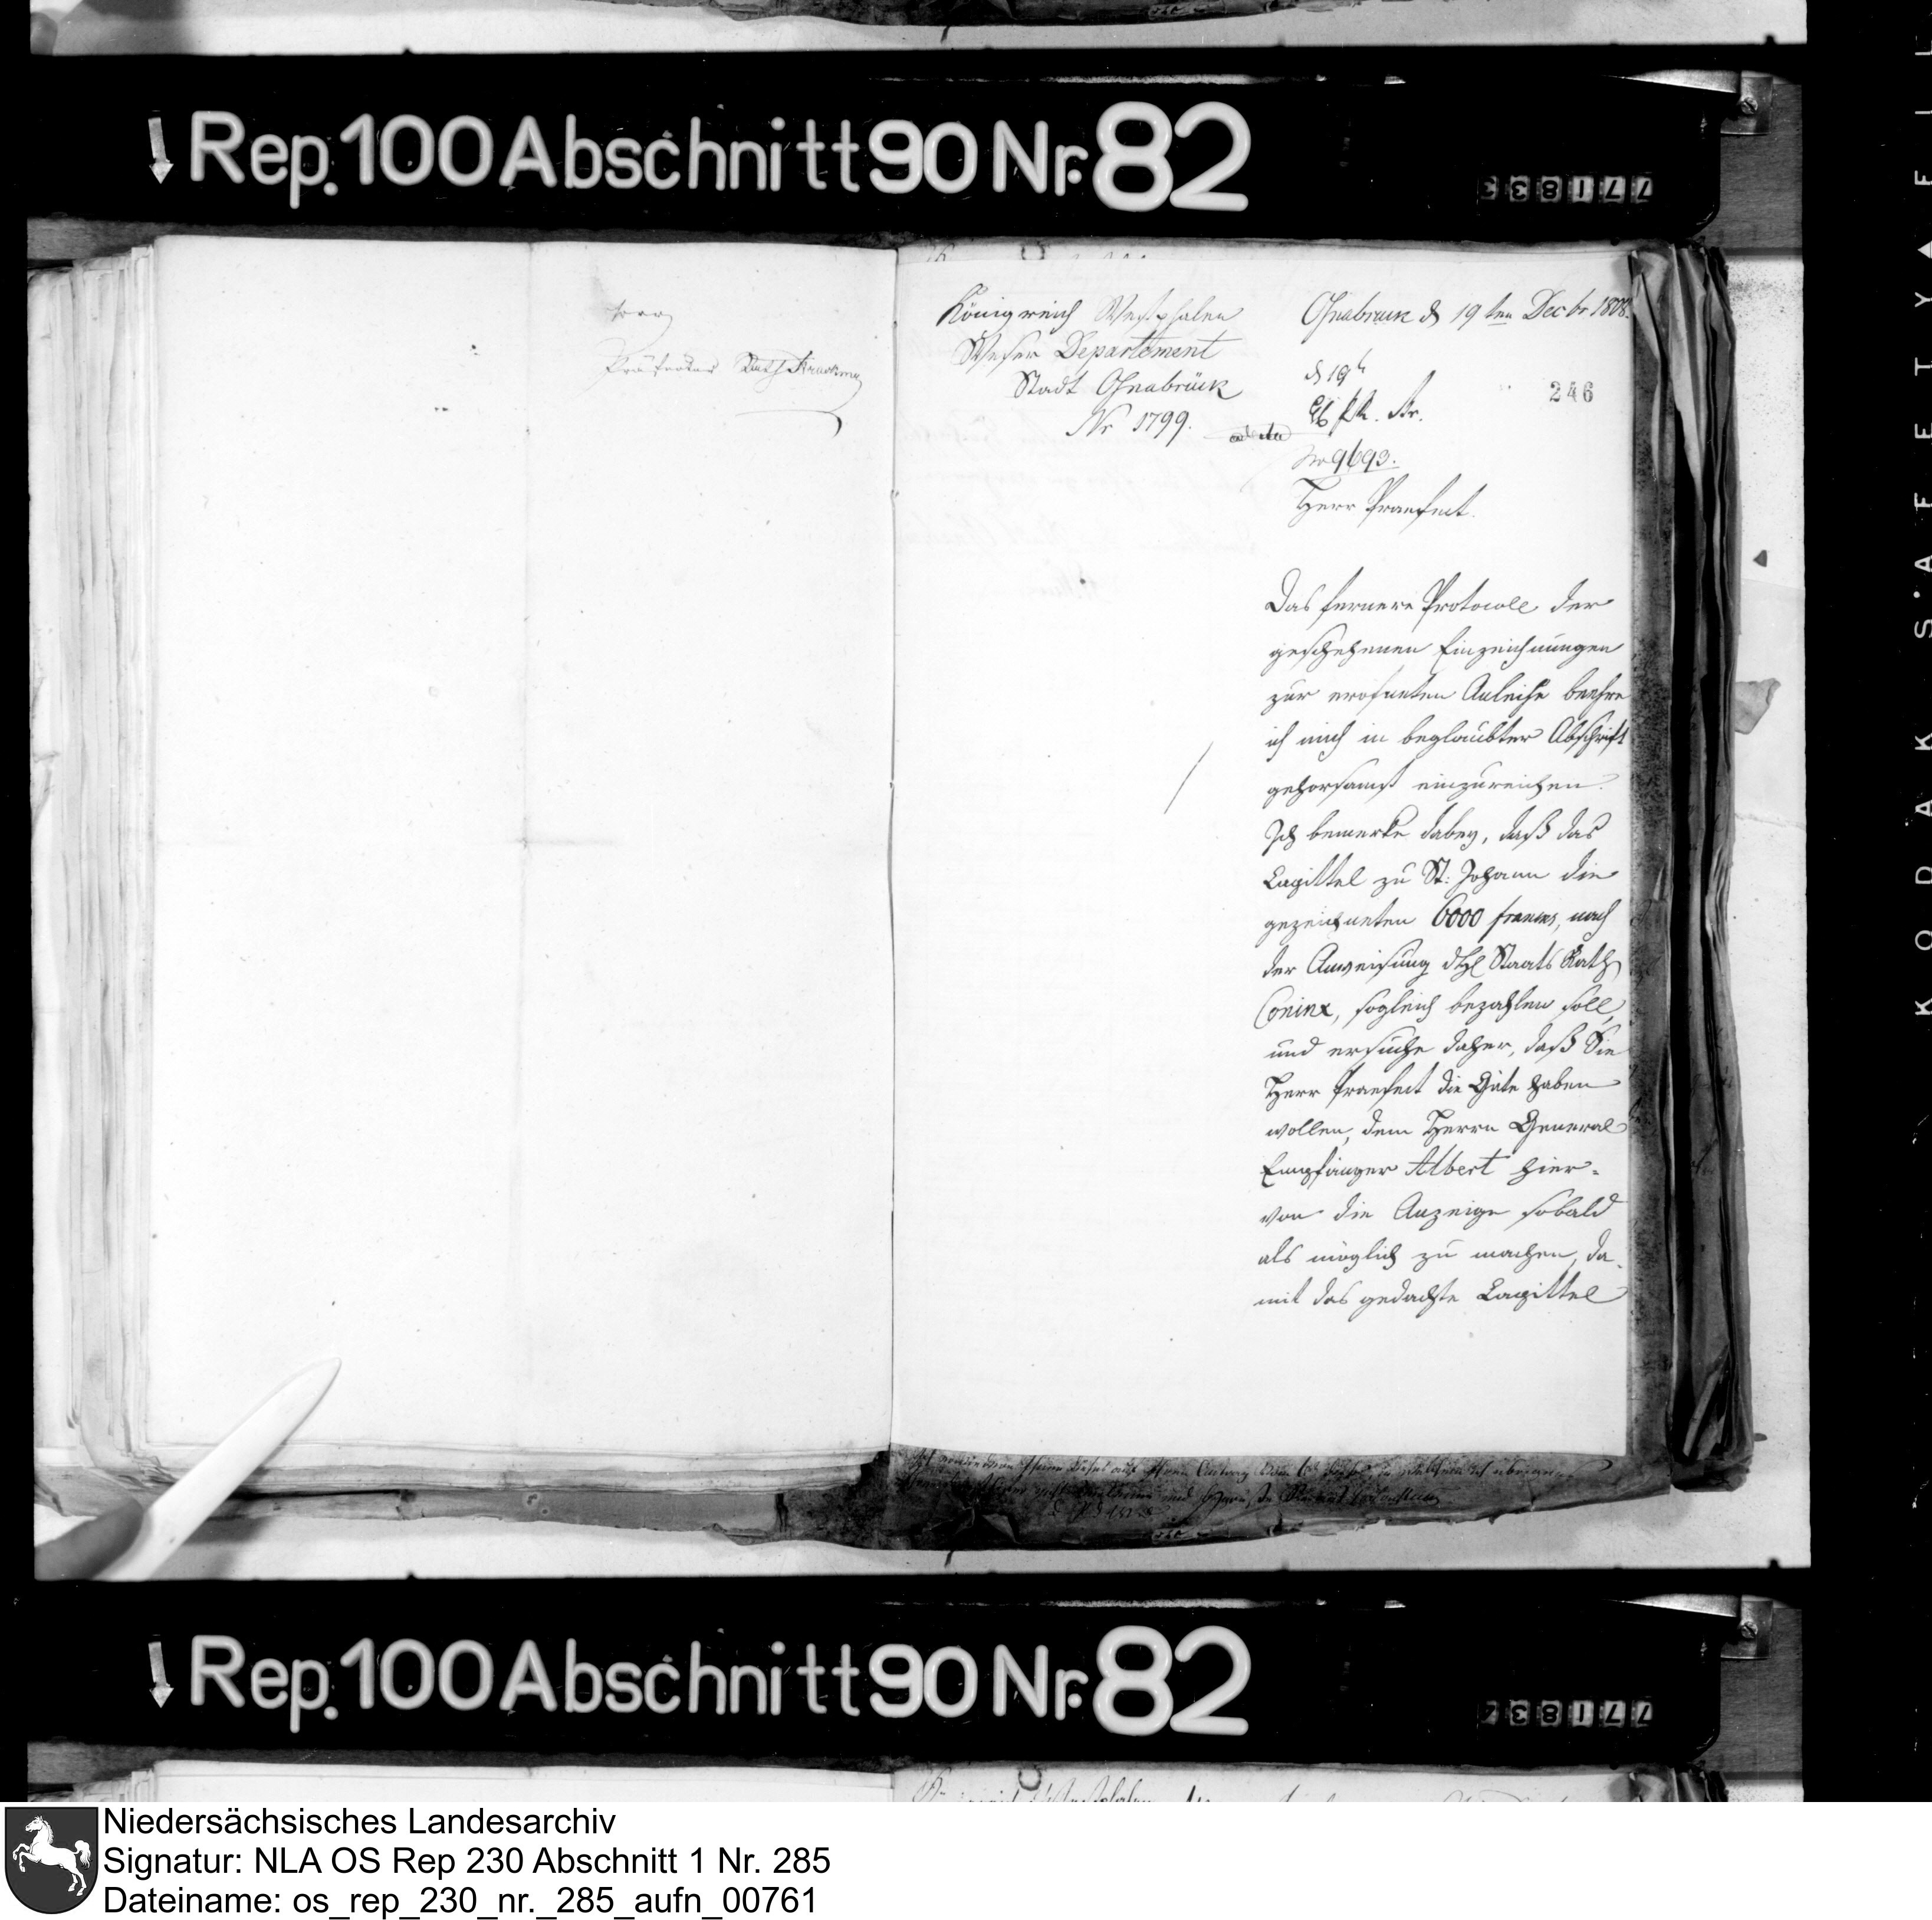 Rep. 100 Abschnitt 90 Nr. 82
771833
Präfectur Rath Struckman
Königreich Westphalen
Weser Departement
Stadt Osnabrück
Nr 1799.
Osnabruck d 19ten Decbr 1808.
d 19
246
No 9693.
Herr Praefect.
Das fernere Protocoll der
geschehenen Einzeichnungen
zur erofneten Anleihe beehre
ich mich in beglaubter Abschrift
gehorsamst einzureichen.
Ich bemerke dabey, daß das
Capittel zu St: Johann die
gezeichneten 6000 francs, nach
der Anweisung des Staats Rath
Coninx, sogleich bezahlen soll,
und ersuche daher, daß Sie
Herr Praefect die Güte haben
wollen, dem Herrn General
Empfänger Albert hier-
von die Anzeige sobald
als möglich zu machen, da-
mit das gedachte Capittel
Rep. 100 Abschnitt 90 Nr. 82
KODAK SAFETY FIL
Niedersächsisches Landesarchiv
Signatur: NLA OS Rep 230 Abschnitt 1 Nr. 285
Dateiname: os_rep_230_nr._285_aufn_00761